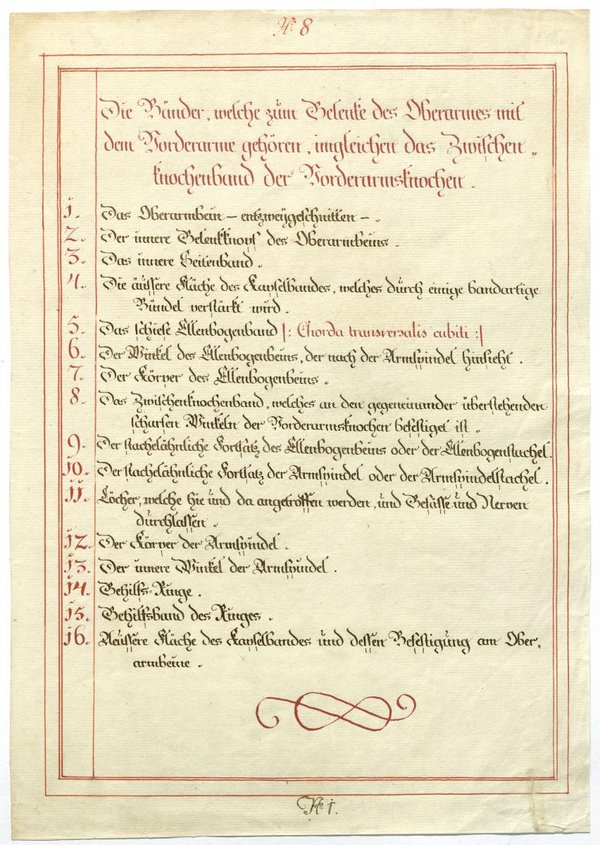 N. 8
Die Bänder, welche zum Gelenke des Oberarmes mit
dem Vorderarme gehören, imgleichen das Zwischen„
knochenband der Vorderarmsknochen.
1. Das Oberarmbein – entzweygeschnitten –.
2. Der innere Gelenkknopf des Oberarmbeins.
3. Das innere Seitenband.
4. Die äussere Fläche des Kapselbandes, welches durch einige bandartige
Bündel verstärkt wird.
5. Das schiefe Ellenbogenband |: Chorda transversalis cubiti :|
6. Der Winkel des Ellenbogenbeins, der nach der Armspindel hinsieht.
7. Der Körper des Ellenbogenbeins.
8. Das Zwischenknochenband, welches an den gegeneinander überstehenden
scharfen Winkeln der Vorderarmsknochen befestiget ist.
9. Der stachelähnliche Fortsatz des Ellenbogenbeins oder der Ellenbogenstachel.
10. Der stachelähnliche Fortsatz der Armspindel oder der Armspindelstachel.
11. Löcher, welche hie und da angetroffen werden, und Gefässe und Nerven
durchlassen.
12. Der Körper der Armspindel.
13. Der innere Winkel der Armspindel.
14. Gehilfs-Ringe.
15. Gehilfsband des Ringes.
16. Aeussere Fläche des Kapselbandes und dessen Befestigung am Ober„
armbeine.
No 1.